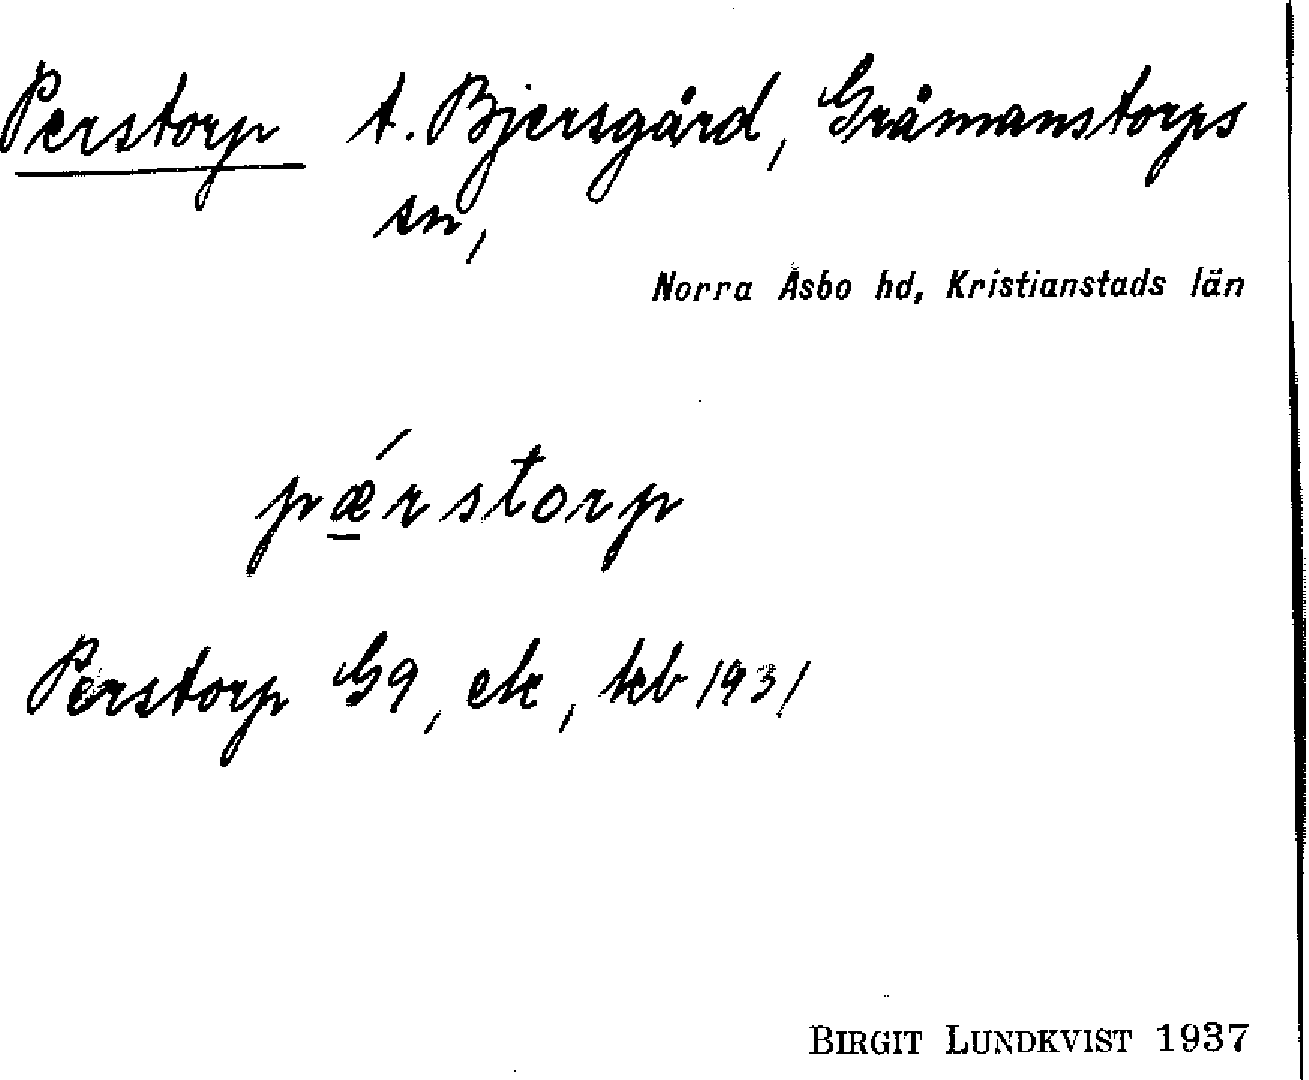 Perstorp t. Bjersgård, Gråmanstorps
sn,
Norra Åsbo hd, Kristianstads län
pǽrstorp
Perstorp G9, ek, kb 1931
BIRGIT LUNDKVIST 1937